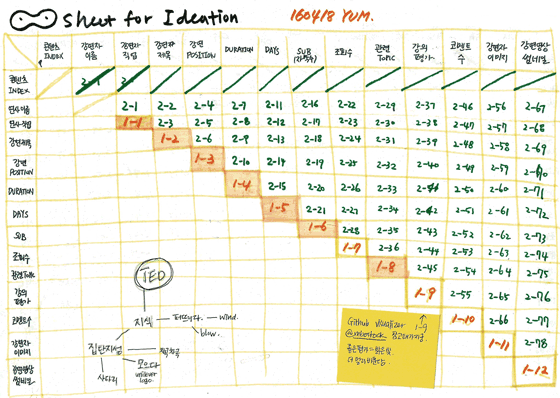 Sheet for Ideation 160418 YUM.
콘텐츠 INDEX 강연자 이름 강연자 직업 강연 제목 강연 POSITION DURATION DAYS SUB (자막수) 조회수 관련 TOPIC 강의 평가 코멘트 수 강연자 이미지 강연영상 썸네일
콘텐츠 INDEX 2-1
2-1 2-2 2-4 2-7 2-11 2-16 2-22 2-29 2-37 2-46 2-56 2-67
1-1 2-3 2-5 2-8 2-12 2-17 2-23 2-30 2-38 2-47 2-57 2-68
강연제목 1-2 2-6 2-9 2-13 2-18 2-24 2-31 2-39 2-48 2-58 2-69
강연 POSITION 1-3 2-10 2-14 2-19 2-25 2-32 2-40 2-49 2-59 2-70
DURATION 1-4 2-15 2-20 2-26 2-33 2-50 2-60 2-71
DAYS 1-5 2-21 2-27 2-34 2-42 2-51 2-61 2-72
SUB 1-6 2-28 2-35 2-43 2-52 2-62 2-73
조회수 1-7 2-36 2-44 2-53 2-74
1-8 2-45 2-54 2-64 2-75
강의 평가 1-9 2-55 2-65 2-76
코멘트수 1-10 2-66 2-77
강연자 이미지 1-11 2-78
강연영상 썸네일 1-12
TED
지식 퍼뜨리다 wind.
blow.
집단지성
모으다
사다리
logo.
Github visualizer 1-9
@mbostock